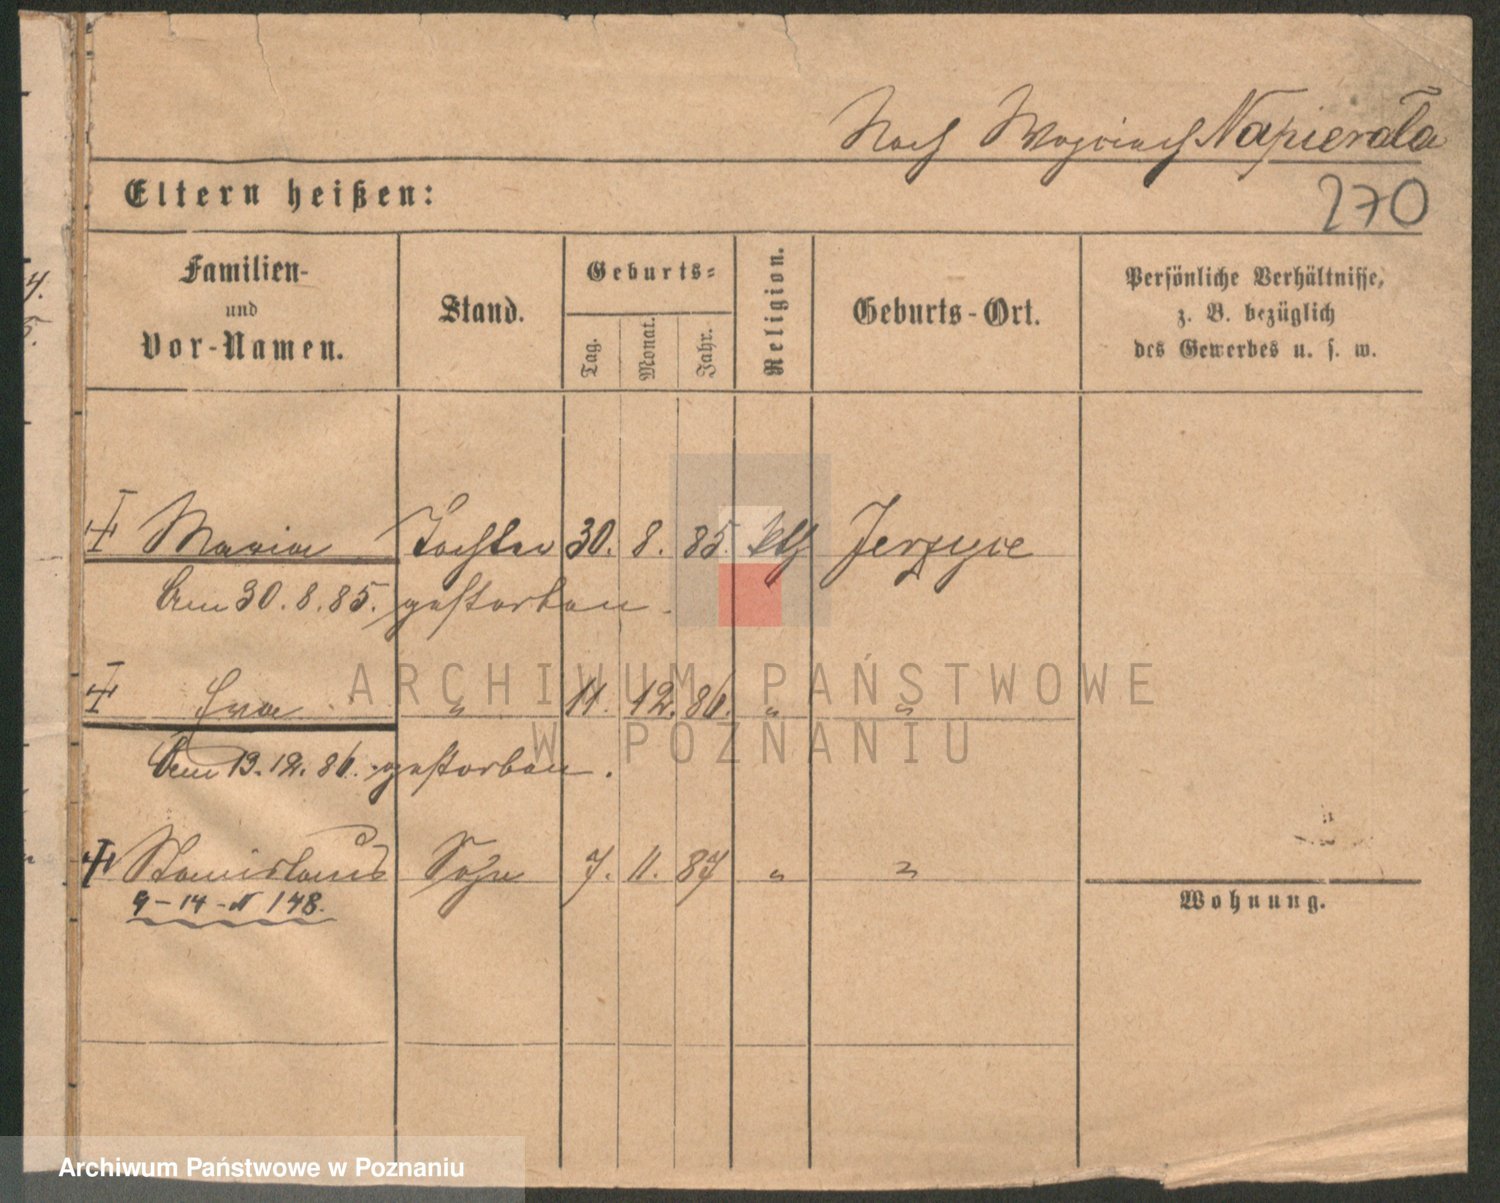 Noch Woyciech Napierała
270
Eltern heißen:
Familien-
und
Vor-Namen.
Stand.
Geburts-
Tag.
Monat.
Jahr.
Religion.
Geburts-Ort.
Persönliche Verhältnisse,
z. B. bezüglich
des Gewerbes u. s. w.
4.
5.
Maria Tochter 30. 8. 85. kth Jerzyce
Am 30. 8. 85. gestorben.
Eva " 11. 12. 86. " "
Am 13. 12. 86. gestorben.
Stanislaus Sohn 7. 11. 87 " "
9-14-N 148.
Wohnung.
ARCHIWUM PAŃSTWOWE
W POZNANIU
Archiwum Państwowe w Poznaniu